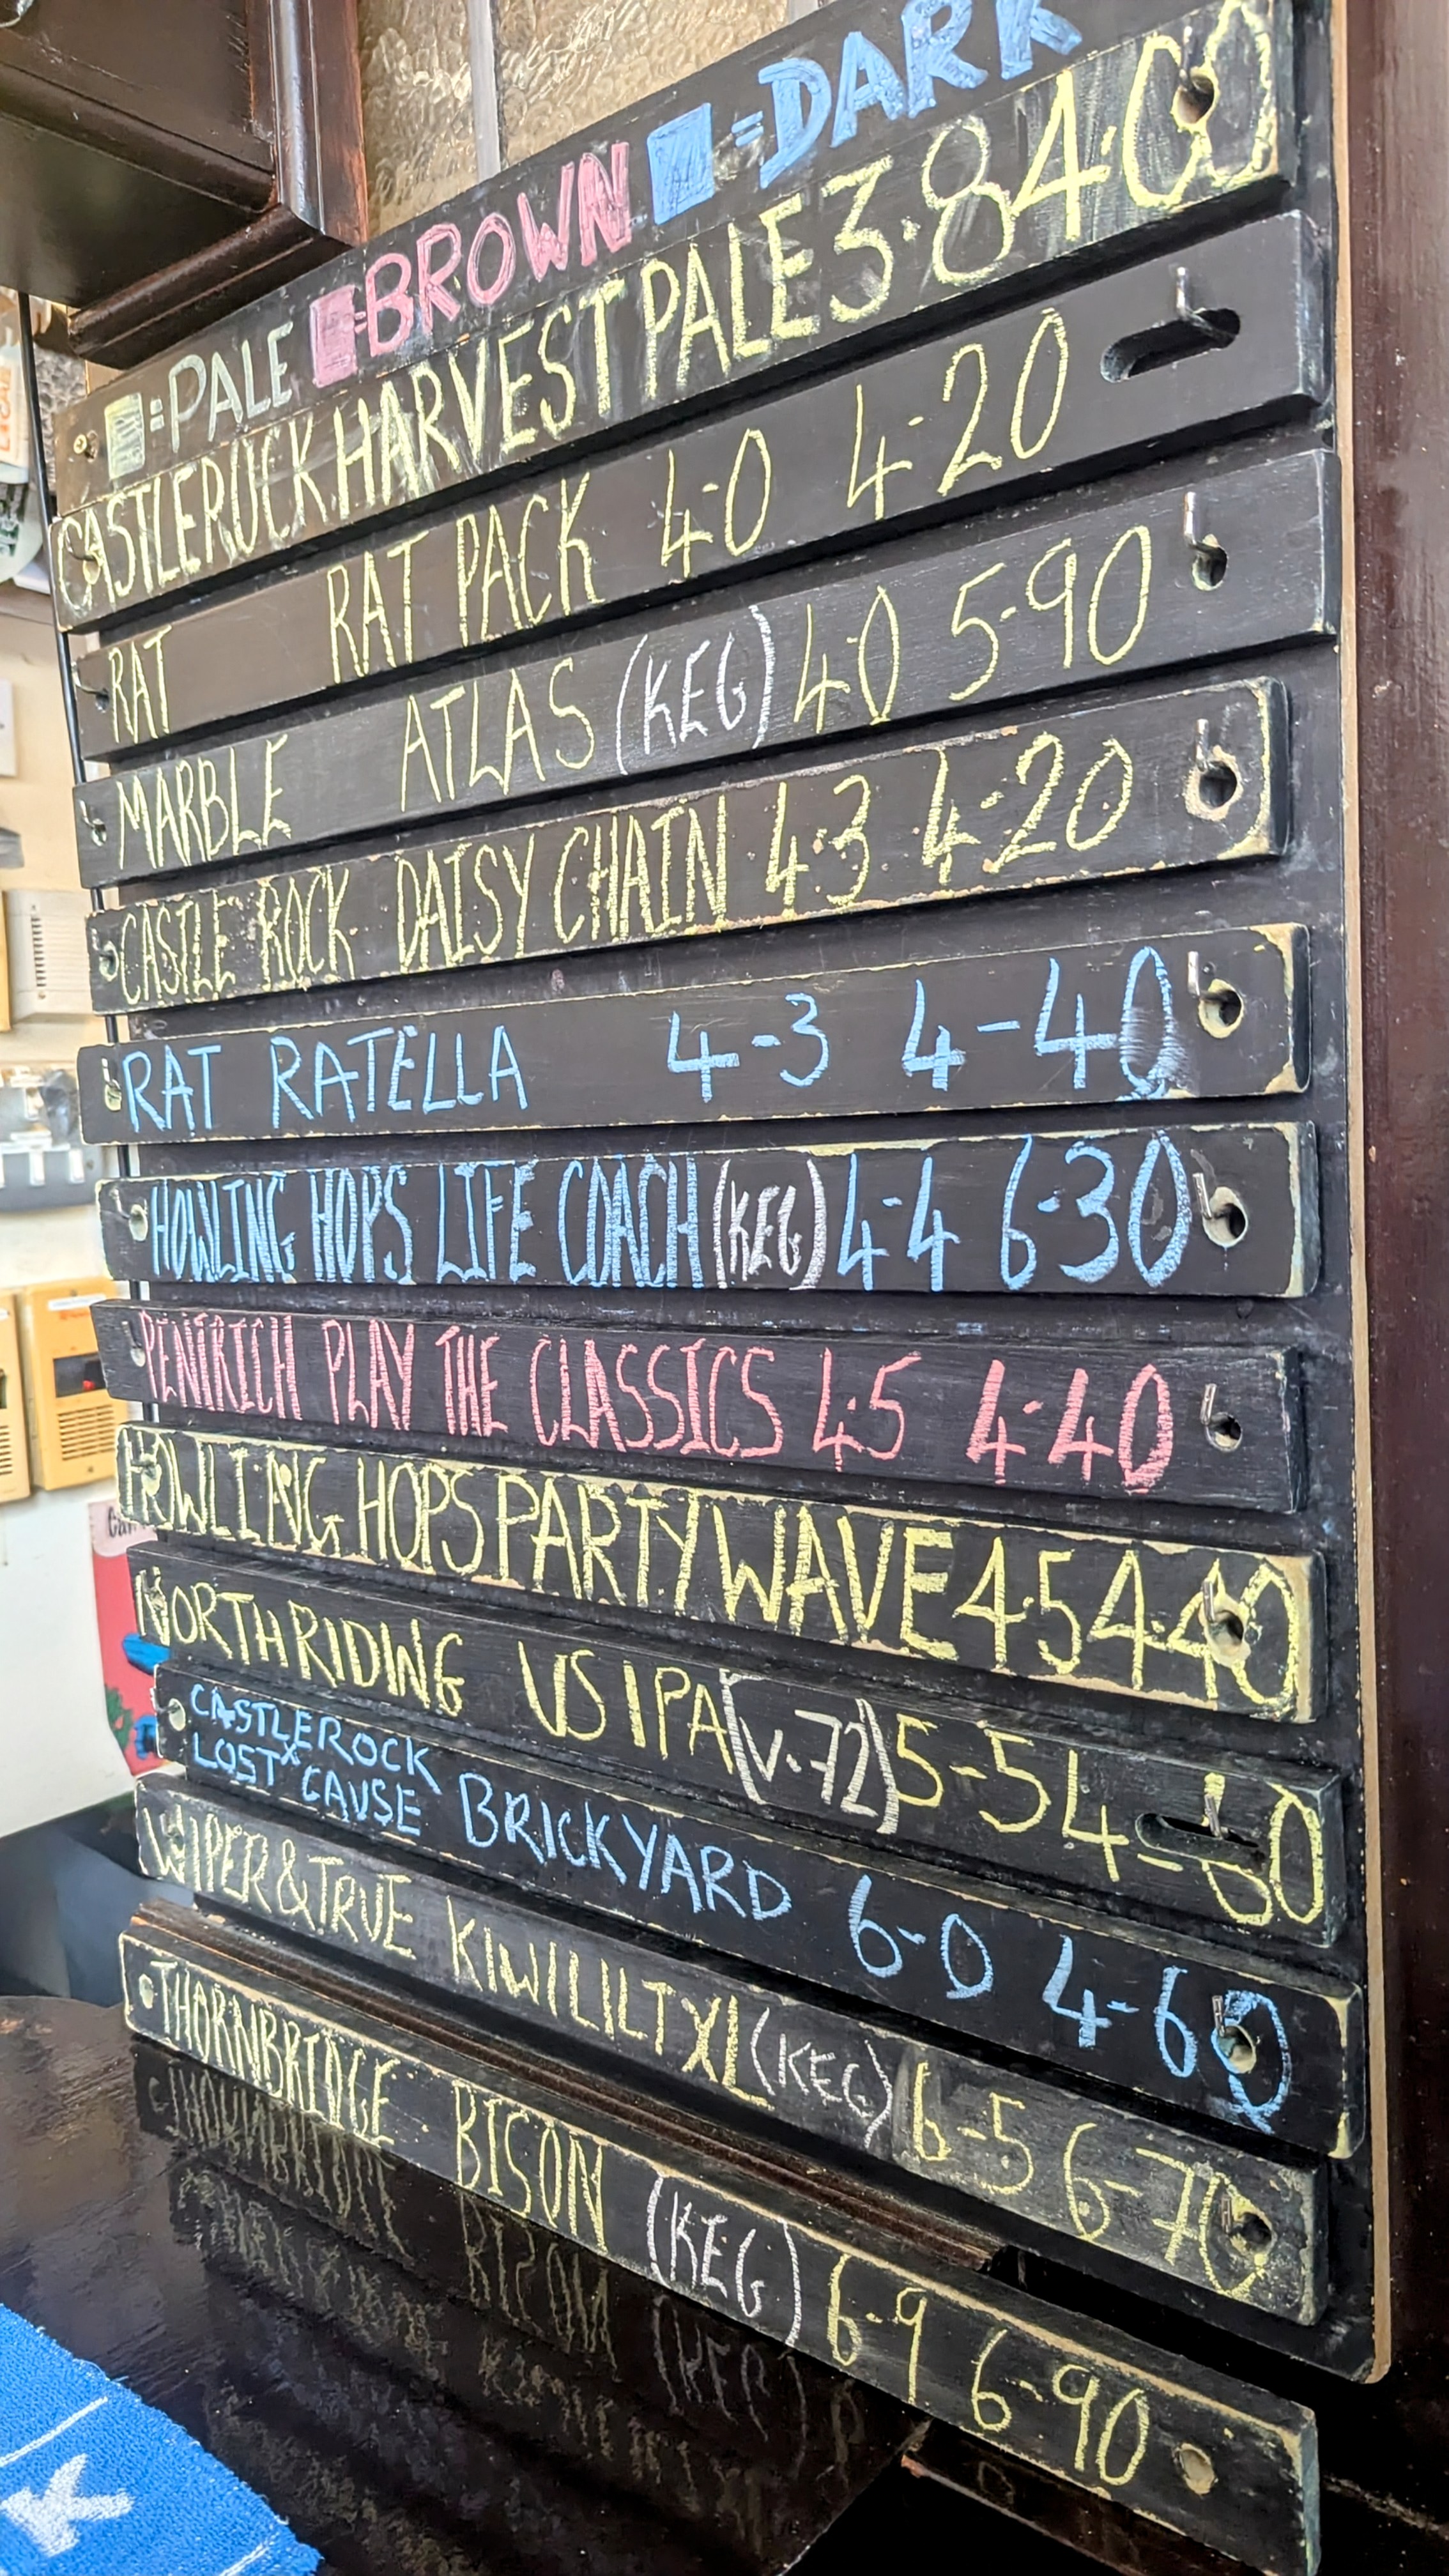 =PALE =BROWN =DARK
CASTLERUCK HARVEST PALE 3.8 4.00
RAT RAT PACK 4-0 4-20
MARBLE ATLAS (KEG) 4-0 5-90
CASTLE ROCK DAISY CHAIN 4.3 4-20
RAT RATELLA 4-3 4-40
HOWLING HOPS LIFE COACH (KEG) 4-4 6-30
PENTRICH PLAY THE CLASSICS 4.5 4-40
HOWLING HOPS PARTY WAVE 4.5 4-40
NORTH RIDING US IPA (V.72) 5-5 4-60
CASTLEROCK
LOST CAUSE BRICKYARD 6-0 4-60
WIPER & TRUE KIWI LILT XL (KEG) 6-5 6-70
THORNBRIDGE BISON (KEG) 6-9 6-90
K